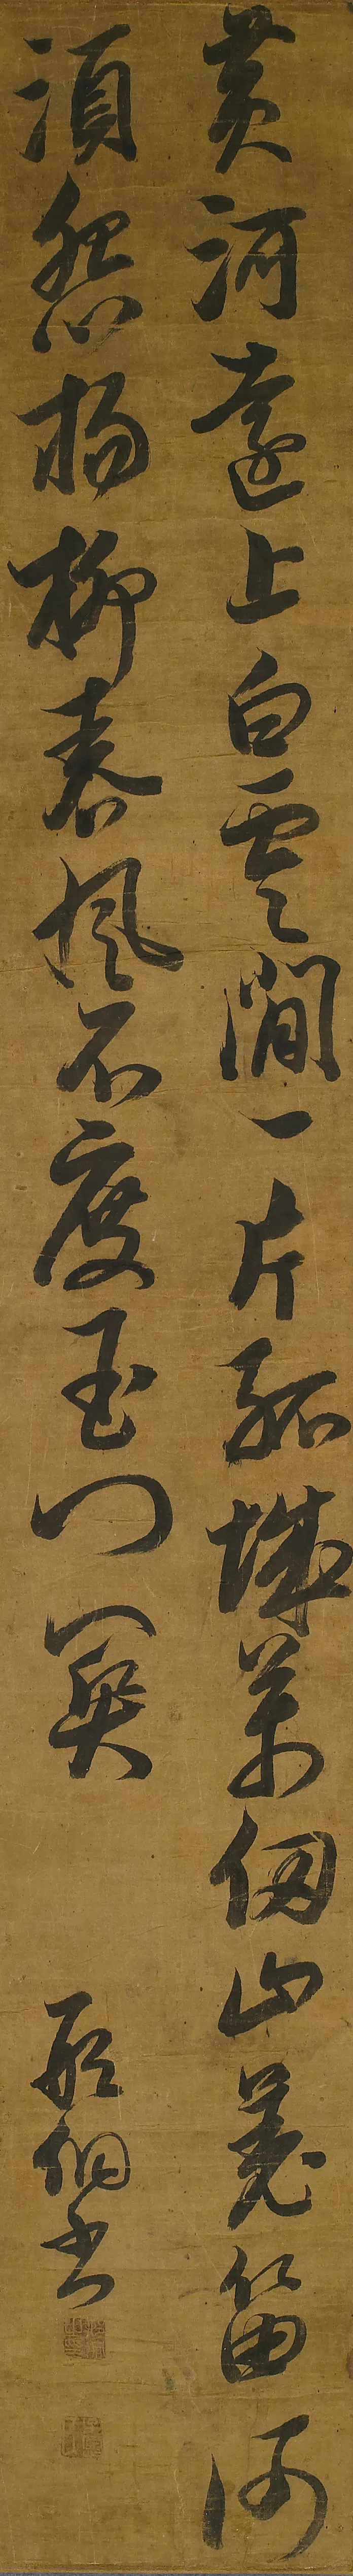 黃河遠上白雲間一片孤城萬仞山羌笛何
須怨楊柳春風不度玉門關
邢侗書